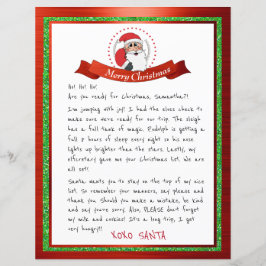 Merry Christmas
Ho! Ho! Ho!
Are you ready for Christmas, Samantha?!
I'm jumping with joy! I had the elves check to
make sure we're ready for our trip. The sleigh
has a full tank of magic. Rudolph is getting a
full 8 hours of sleep every night so his nose
lights up brighter than the stars. Lastly, my
secretary gave me your Christmas list. We are
all set!
Santa wants you to stay on the top of my nice
list. So remember your manners, say please and
thank you. Should you make a mistake, be kind
and say you're sorry. Also, PLEASE don't forget
my milk and cookies! It's a long trip, I get
very hungry!!
XOXO SANTA